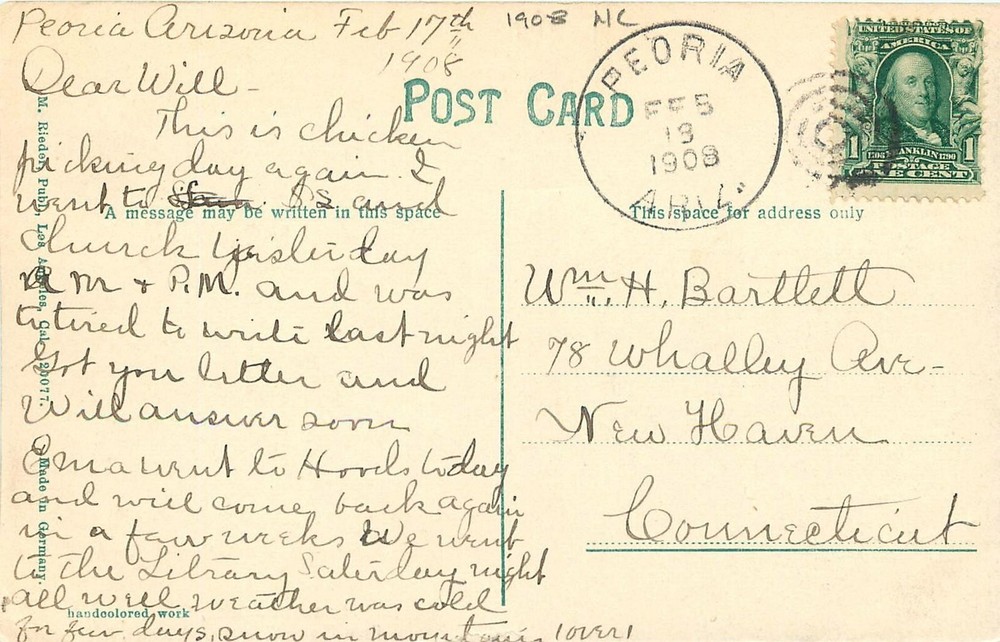 Peoria Arizona Feb 17th 1908 NC
1908
Dear Will -
This is chicken
picking day again. I
went to S.S and
Church Yesterday
A m + P.M. and was
to tired to write last night
Got you letter and
Will answer soon
Oma went to Hoods today
and will come back again
in a few weeks We went
to the Library Saterday night
all well weather was cold
for few days, snow in mountains (over)
POST CARD
A message may be written in this space
This space for address only
M. Rieder, Publ., Los Angeles, Cal. 20077. Made in Germany.
handcolored work
PEORIA
FEB
18
1908
ARIZ.
UNITED STATES OF
AMERICA
1 1
1706 FRANKLIN 1790
POSTAGE
ONE CENT
Wm. H. Bartlett
78 Whalley Ave-
New Haven
Connecticut